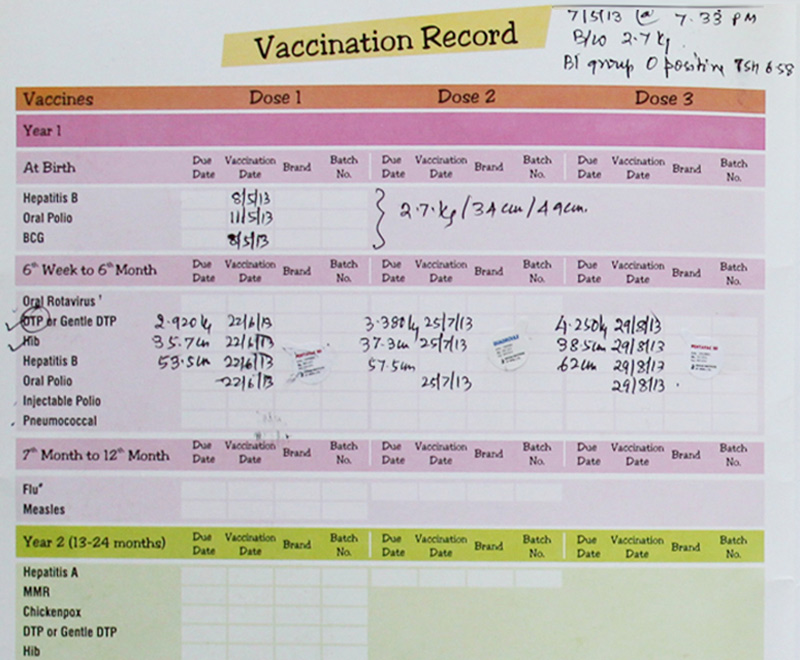 7/5/13 @ 7.33 PM
B/W 2.7 kg
Bl group O positive TSH 6.58
Vaccination Record
Vaccines Dose 1 Dose 2 Dose 3
Year 1
At Birth Due Date Vaccination Date Brand Batch No. Due Date Vaccination Date Brand Batch No. Due Date Vaccination Date Brand Batch No.
Hepatitis B 8/5/13
Oral Polio 11/5/13 2.7 kg/34 cm/49cm.
BCG 8/5/13
6th Week to 6th Month Due Date Vaccination Date Brand Batch No. Due Date Vaccination Date Brand Batch No. Due Date Vaccination Date Brand Batch No.
Oral Rotavirus †
DTP or Gentle DTP 2.920 kg 22/6/13 3.380 kg 25/7/13 4.250 kg 29/8/13
Hib 35.7cm 22/6/13 37.3cm 25/7/13 38.5cm 29/8/13
Hepatitis B 53.5cm 22/6/13 57.5cm 62cm 29/8/13
Oral Polio 22/6/13 25/7/13 29/8/13
Injectable Polio
Pneumococcal
7th Month to 12th Month Due Date Vaccination Date Brand Batch No. Due Date Vaccination Date Brand Batch No. Due Date Vaccination Date Brand Batch No.
Flu#
Measles
Year 2 (13-24 months) Due Date Vaccination Date Brand Batch No. Due Date Vaccination Date Brand Batch No. Due Date Vaccination Date Brand Batch No.
Hepatitis A
MMR
Chickenpox
DTP or Gentle DTP
Hib